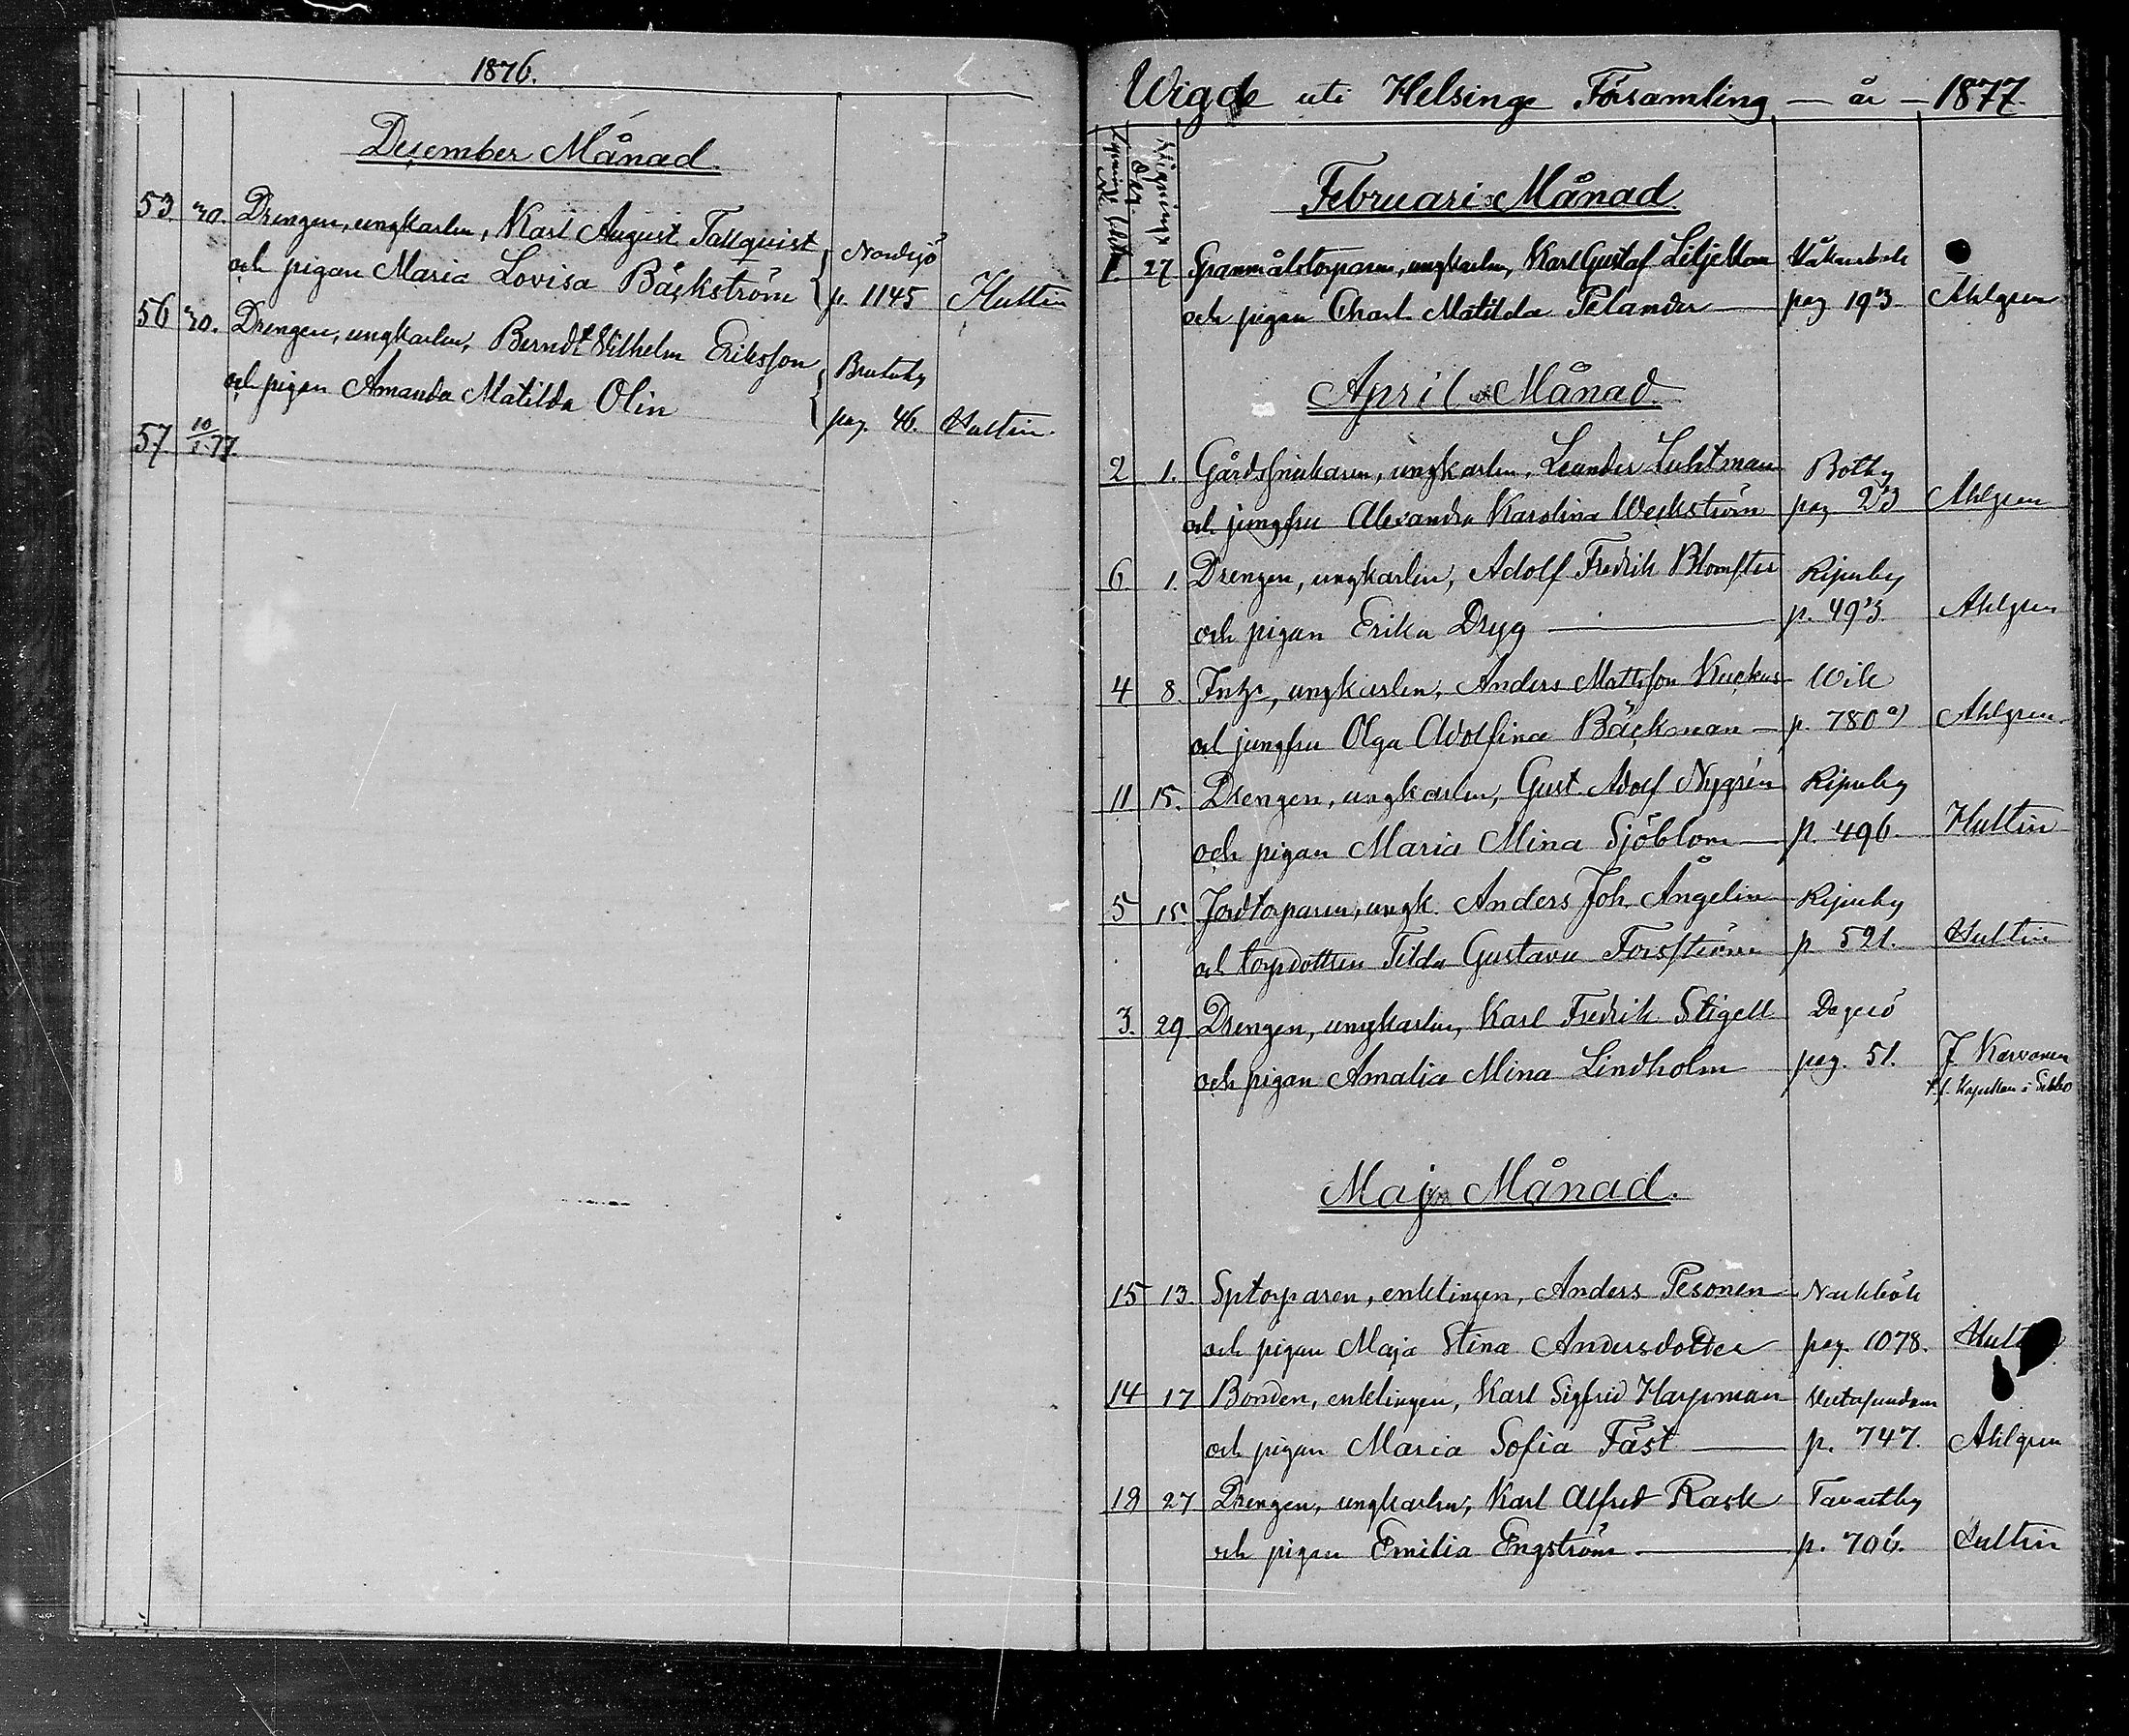 1876.
December Månad.
53. 30. Drengen, ungkarlen, Karl August Tallquist Nordsjö
och pigan Maria Lovisa Bäckström p. 1145 Hultin
56 30. Drengen, ungkarlen, Berndt Wilhelm Eriksson Brutuby
och pigan Amanda Matilda Olin pag. 46. Hultin
57. 10/1.77.
Wigde uti Helsinge Församling — år — 1877.
Lysnings No. Wignings dag.
Februari Månad
1. 27 Spannmålstorparen, ungkarlen, Karl Gustaf Liljeblom Håkansböle
och pigan Charl. Matilda Pelander pag 193. Ahlgren
April Månad.
2 1. ungkarlen, Leander Luhtman Botby
och jungfru Alexandra Karolina Weckström pag 253 Ahlgren
6. 1. Drengen, ungkarlen, Adolf Fredrik Blomster Ripuby
och pigan Erika Dryg p. 493. Ahlgren
4 8. ungkarlen, Anders Mattsson Kuckus Wik
och jungfru Olga Adolfina Bäckman p. 780 a) Ahlgren
11 15. Drengen, ungkarlen, Gust. Adolf Nygrén Ripuby
och pigan Maria Mina Sjöblom p. 496. Hultin
5 15. Jordtorparen, ungk. Anders Joh. Ångelin Ripuby
och torpdottren Tilda Gustava Forsström p 521. Hultin
3. 29. Drengen, ungkarlen, Karl Fredrik Stigell Degerö
och pigan Amalia Mina Lindholm pag. 51. J. Karvonen
t.f. Kapellan i Sibbo
Maj Månad.
15 13. Sptorparen, enklingen, Anders Pesonen Nackböle
och pigan Maja Stina Andersdotter pag. 1078. Hultin
14 17 Bonden, enklingen, Karl Sigfrid Harpman
och pigan Maria Sofia Fast p. 747. Ahlgren
19 27 Drengen, ungkarlen, Karl Alfred Rask Tavastby
och pigan Emilia Engström p. 706. Hultin